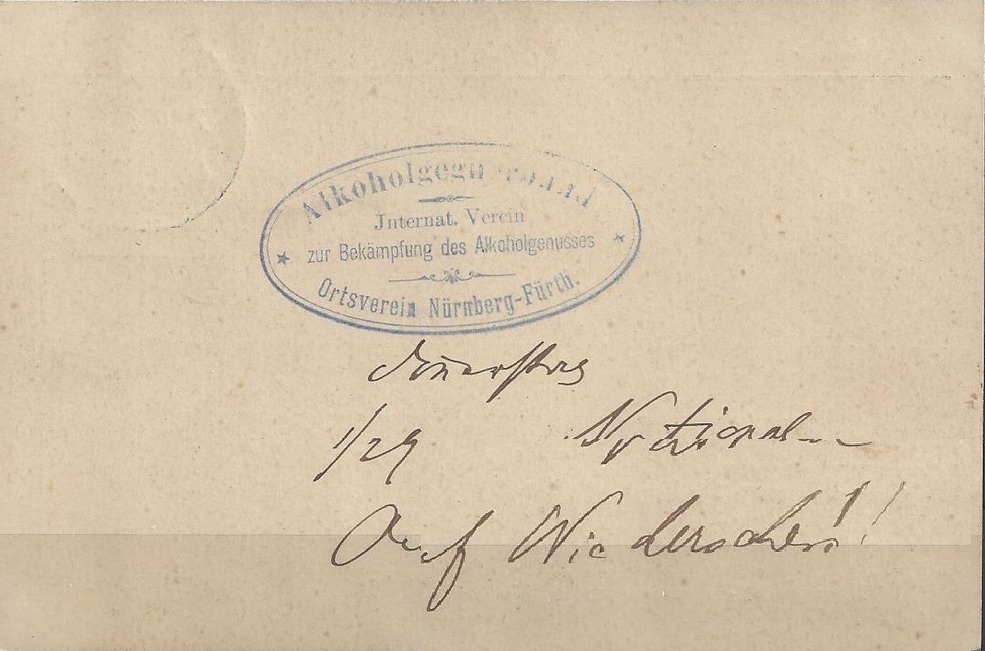 Alkoholgegnerbund
Jnternat. Verein
zur Bekämpfung des Alkoholgenusses
Ortsverein Nürnberg-Fürth.
Donnerstag
1/29 National--
Auf Wiedersehen!!